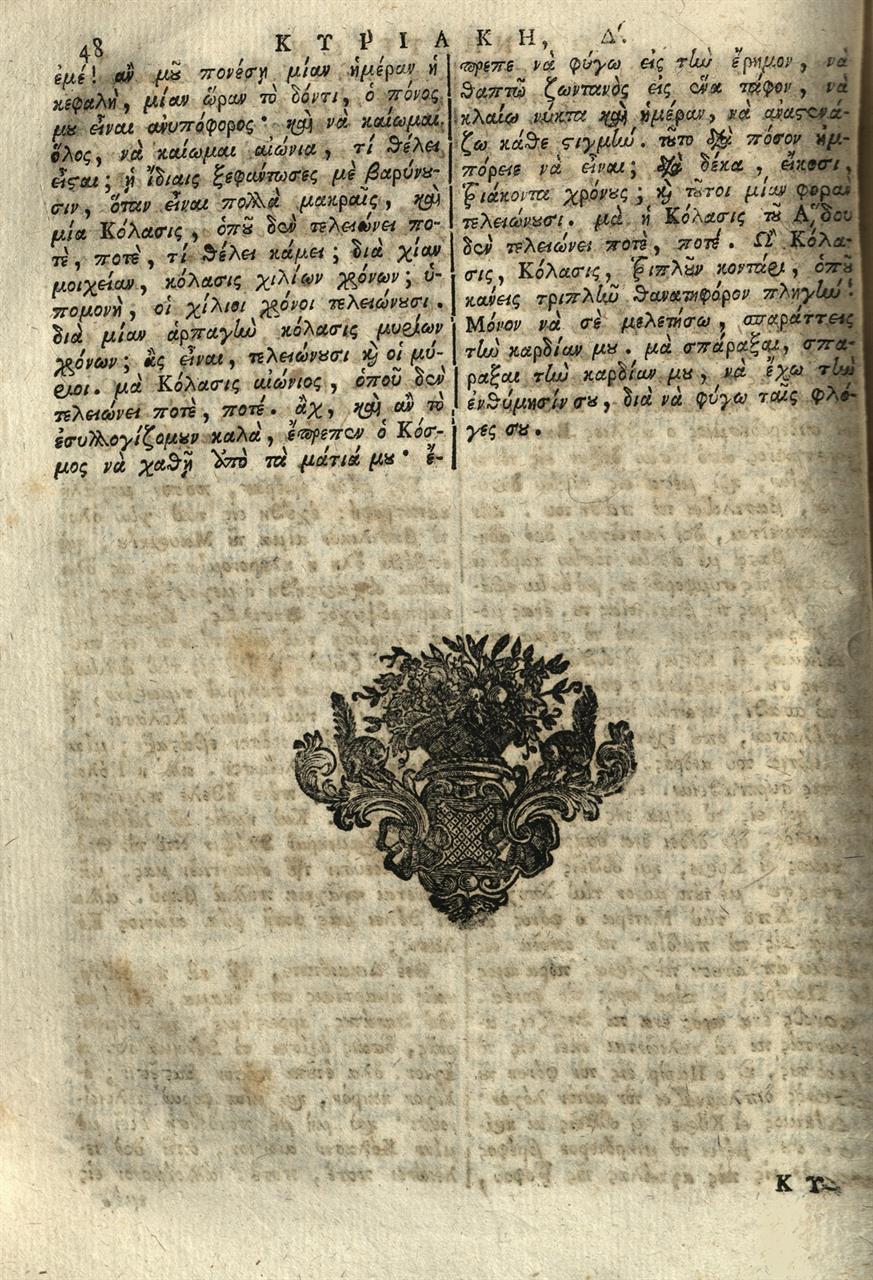 48
ΚΥΡΙΑΚΗ, Δ'.
ἐμέ! ἂν μοῦ πονέσῃ μίαν ἡμέραν ἡ
κεφαλὴ, μίαν ὥραν τὸ δόντι, ὁ πόνος
μου εἶναι ἀνυπόφορος· καὶ νὰ καίωμαι
ὅλος, νὰ καίωμαι αἰώνια, τί θέλει
εἶσται; ἡ ἴδιαις ξεφάντωσες μὲ βαρύνου-
σιν, ὅταν εἶναι πολλὰ μακραῖς, καὶ
μία Κόλασις, ὁποῦ δὲν τελειώνει πο-
τὲ, ποτὲ, τί θέλει κάμει; διὰ χίαν
μοιχείαν, κόλασις χιλίων χρόνων; ὑ-
πομονὴ, οἱ χίλιοι χρόνοι τελειώνουσι.
διὰ μίαν ἁρπαγὴν κόλασις μυρίων
χρόνων; ἂς εἶναι, τελειώνουσι καὶ οἱ μύ-
ριοι. μὰ Κόλασις αἰώνιος, ὁποῦ δὲν
τελειώνει ποτὲ, ποτέ. ἂχ, καὶ ἂν τὸ
ἐσυλλογίζομουν καλὰ, ἔπρεπεν ὁ Κόσ-
μος νὰ χαθῇ ἀπὸ τὰ μάτιά μου· ἔ-
πρεπε νὰ φύγω εἰς τὴν ἔρημον, νὰ
θαπτῶ ζωντανὸς εἰς ἕνα τάφον, νὰ
κλαίω νύκτα καὶ ἡμέραν, νὰ ἀναστενά-
ζω κάθε στιγμήν. τοῦτο διὰ πόσον ἠμ-
πόρειε νὰ εἶναι; διὰ δέκα, εἴκοσι,
τριάκοντα χρόνους; καὶ τοῦτοι μίαν φορὰν
τελειώνουσι. μὰ ἡ Κόλασις τοῦ Ἅδου
δὲν τελειώνει ποτὲ, ποτέ. Ὦ Κόλα-
σις, Κόλασις, τριπλοῦν κοντάρι, ὁποῦ
κάνεις τριπλῆν θανατηφόρον πληγήν!
Μόνον νὰ σὲ μελετήσω, σπαράττεις
τὴν καρδίαν μου. μὰ σπάραξαι, σπά-
ραξαι τὴν καρδίαν μου, νὰ ἔχω τὴν
ἐνθύμησίν σου, διὰ νὰ φύγω ταῖς φλό-
γες σου.
ΚΥ-